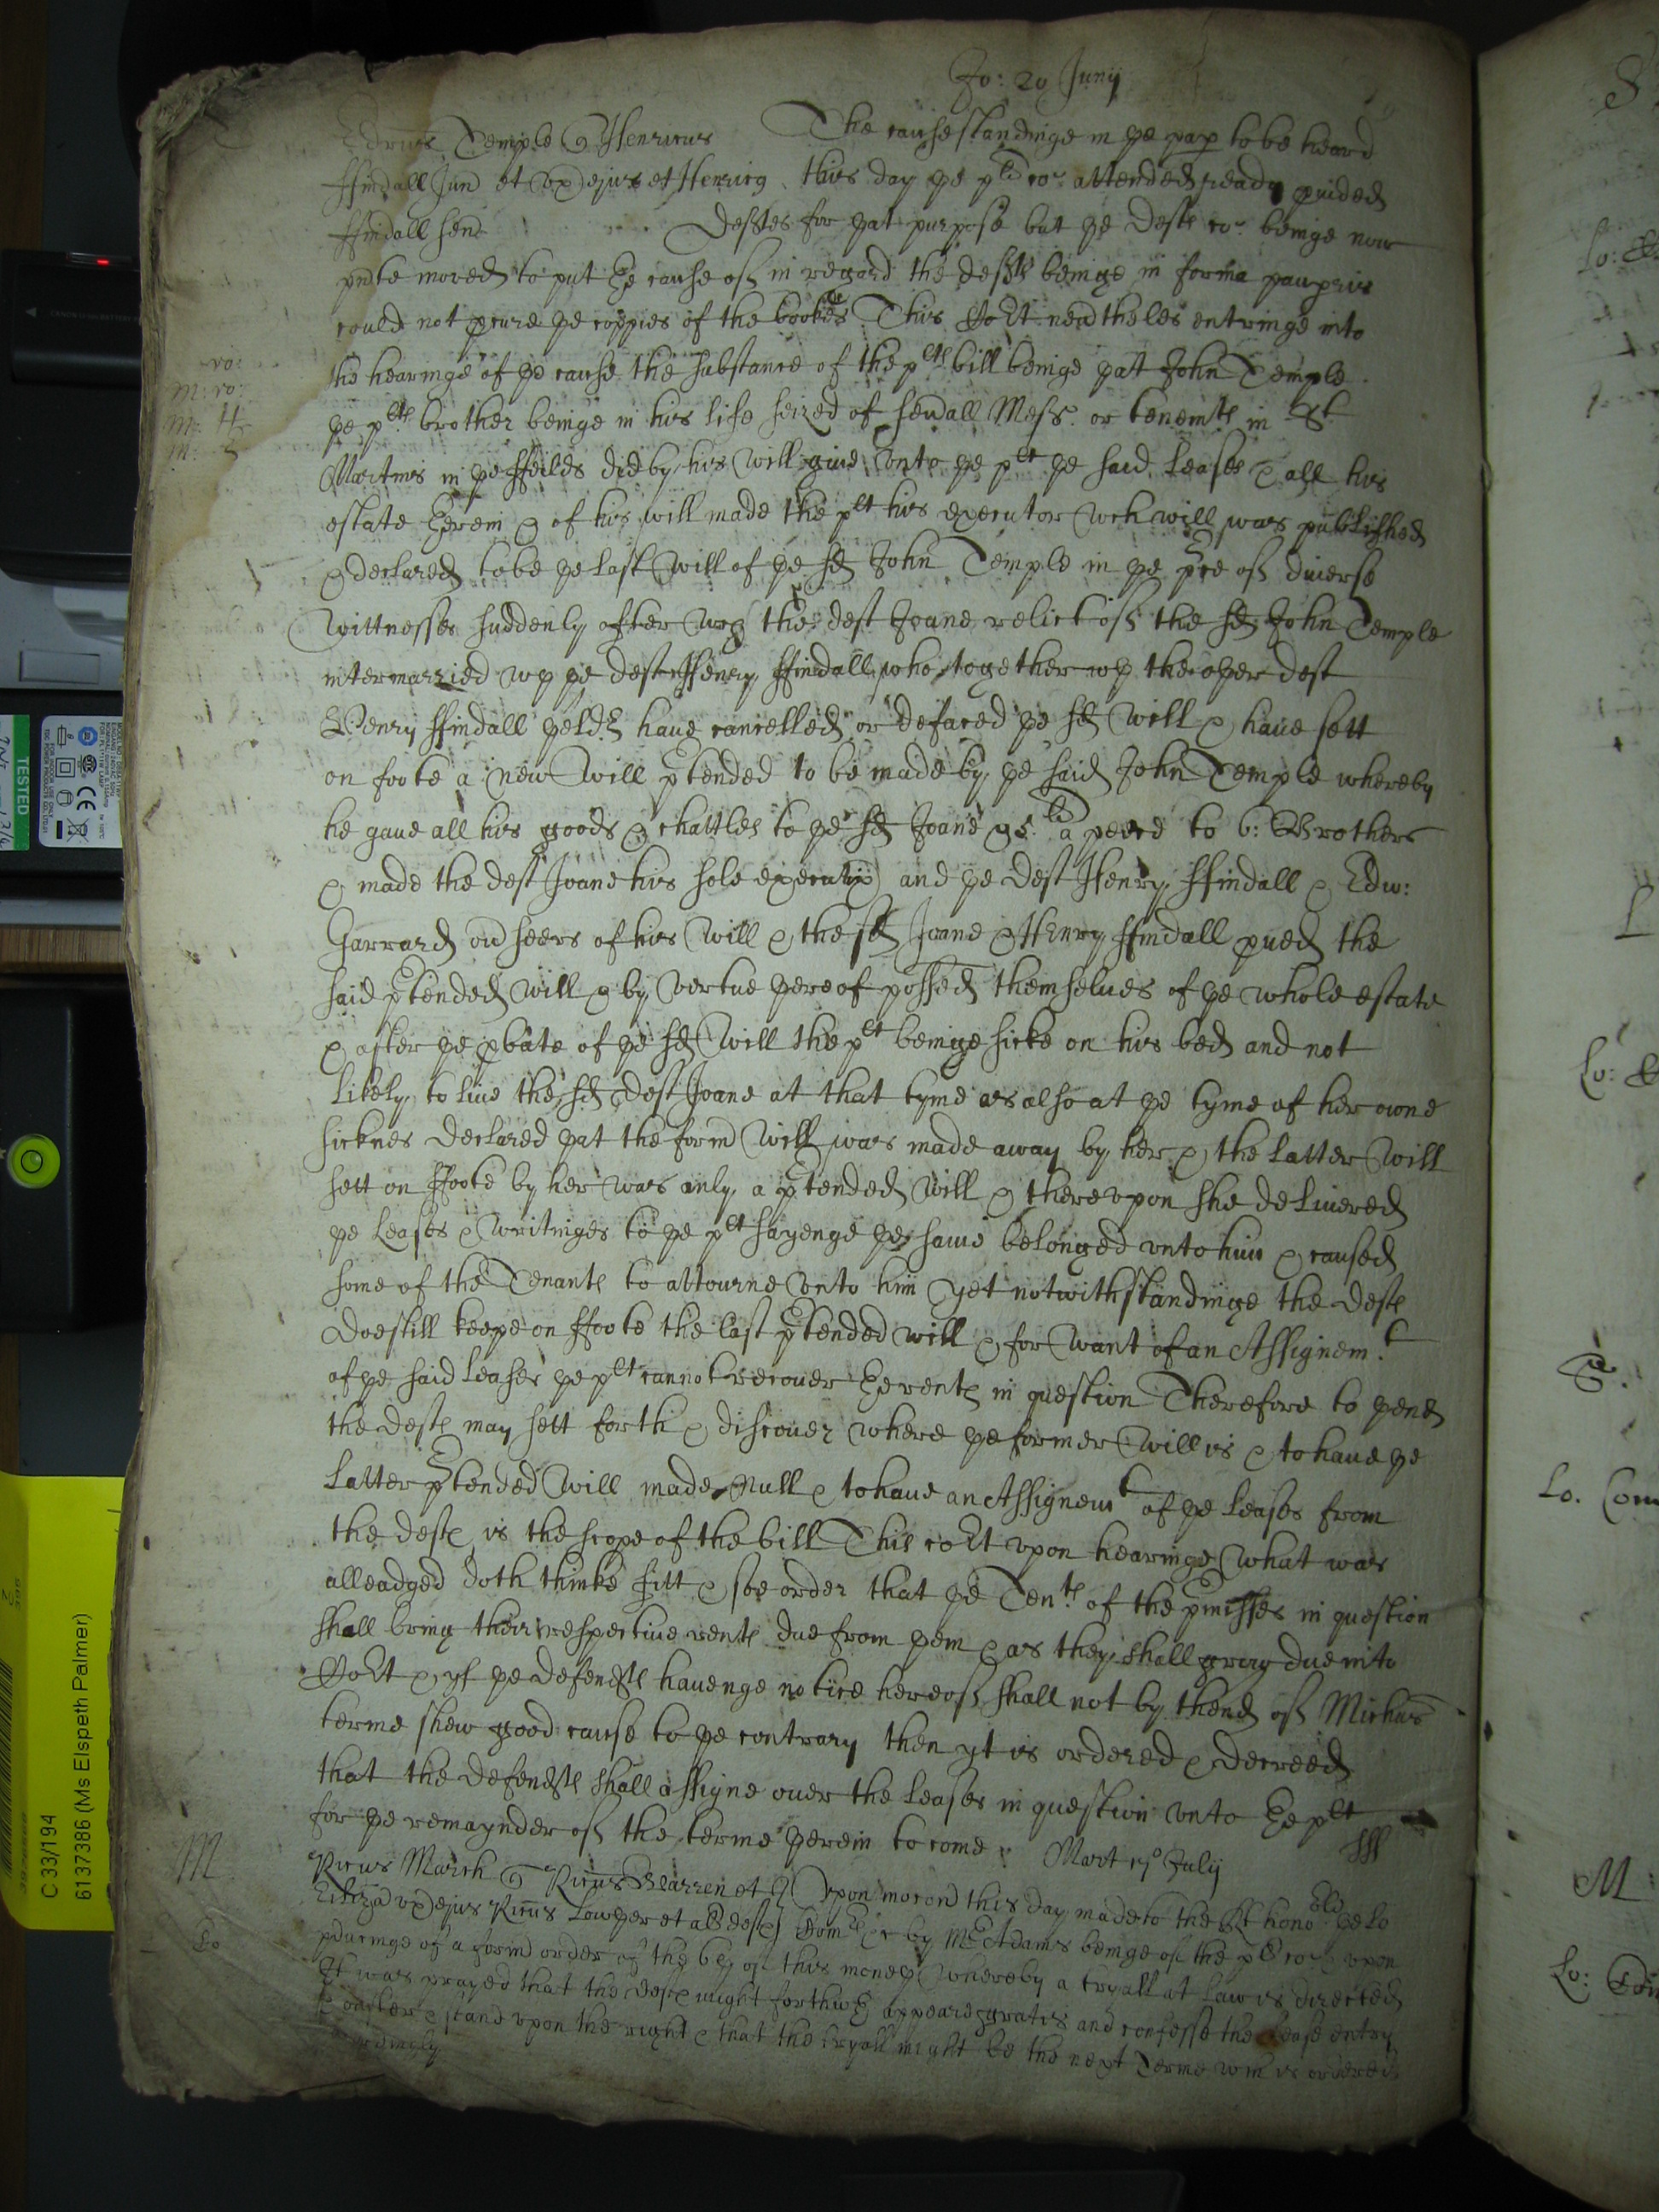 Jo: 20 Junij
Edrūs Temple q Henricus The cause standinge in ye pap to be heard
ffindall Jun et ux ejus et Henricū this day ye plts co: attended ready pvided
ffindall sen Defftes for yat purpose but ye deftes co: beinge now
pnte moved to put ye cause off in regard the deftes beinge in forma paupris
could not pcure ye coppies of the bookes This Court nevtheles entringe into
the hearinge of ye cause the substance of the plts bill beinge yatt John Temple
ye plts brother beinge in his life seized of sevrall Mess. or tenemts in St
Martins in ye ffeilds did by his will give unto ye plt ye said Leases & all his
estate yerein & of his will made the plt his executor wch will was published
& declared to be ye last will of ye sd John Temple in ye pnce off diverse
Wittnesses suddenly after wch the deft Joane relict off the sd John Temple
intermarried wth ye deft Henry ffindall who together wth the oyer deft
Henry ffindall yeldr have cancelled or defaced ye sd Will & have sett
on foote a new Will ptended to be made by ye said John Temple whereby
he gave all his goods & chattles to ye sd Joane & 5li a peece to 6: Brothers
& made the deft Joane his sole executrix and ye deft Henry ffindall & Edw:
Garrard ovseers of his Will & the sd Joane & Henry ffindall pved the
said ptended will & by vertue yereof possed themselves of ye whole estate
& after ye pbate of ye sd Will the plt beinge sicke on his bed and not
likely to live the sd deft Joane at that tyme as also at ye tyme of her owne
sicknes declared yat the formr Will was made away by her & the latter Will
sett on ffoote by her was only a ptended will & thereupon she delivered
ye leases & writinges to ye plt sayenge ye same belonged unto him & caused
some of the Tenants to attourne unto him yet notwithstandinge the defts
doe still keepe on ffoote the last ptended will & for want of an Assignemt
of ye said leases ye plt cannot recover ye rents in question Therefore to yend
the defts may sett forth & discover where ye former Will is & to have ye
latter ptended Will made Null & to have an Assignemt of ye leases from
the defts is the scope of the bill This cort upon hearinge what was
alleadged doth thinke fitt & soe order that ye Tents of the pmisses in question
shall bring their respective rents due from yem & as they shall grow due into
Cort & yf ye defendts havenge notice hereoff shall not by thend off Michas
terme shew good cause to ye contrary then yt is ordered & decreed
that the defendts shall assigne over the leases in question unto ye plt
for ye remaynder off the terme yerein to come Mart 15o July
Ricus March q Ricus Warren et Upon mocon this day made to the Rt honoble ye Lo
Eliza ux ejus Ricus Lowther et al defts Comrs &c by Mr Adams beinge of the plts co: & upon
pduceinge of a formr order of the 6th of this moneth whereby a tryall at Law is directed
It was prayed that the defts might forthwth appeare gratis and confesse the lease entry
& ouster & stand upon the right & that the tryall might be the next Terme wch is ordered
TESTED
C 33/194
6137386 (Ms Elspeth Palmer)